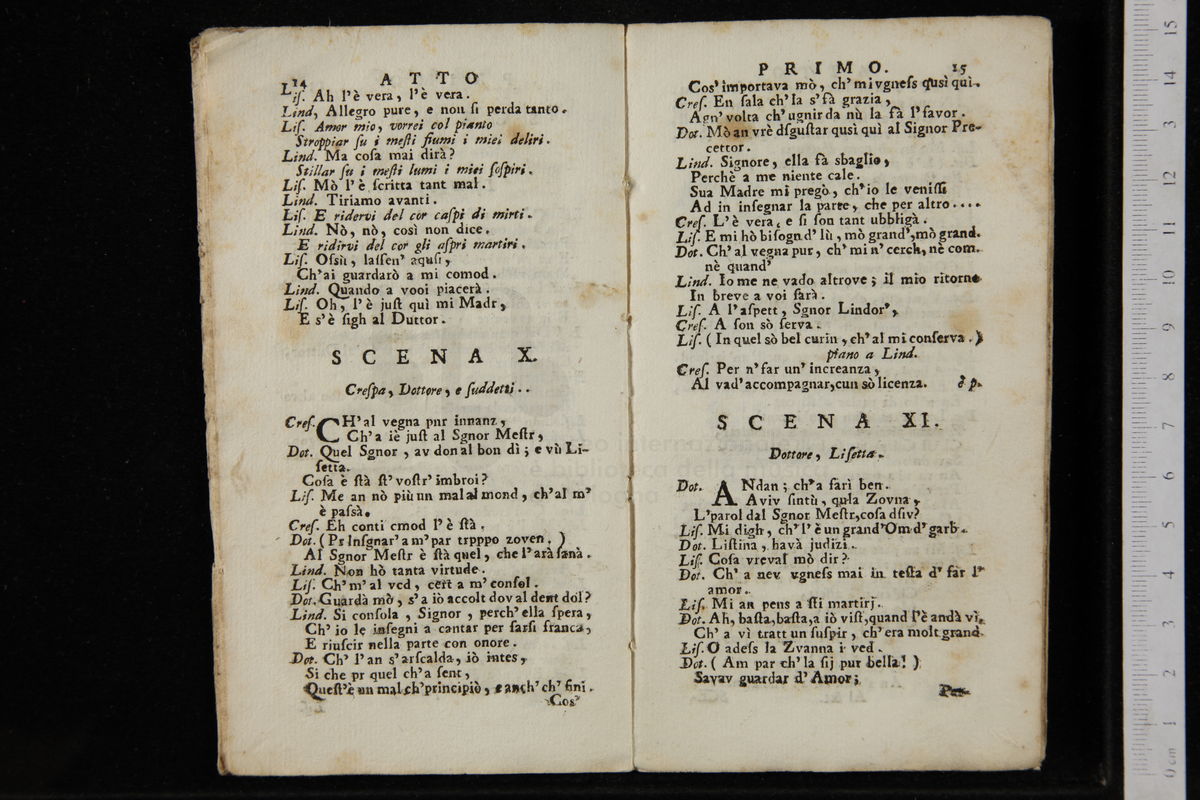 14 ATTO
Liſ. Ah l'è vera, l'è vera.
Lind, Allegro pure, e non ſi perda tanto.
Liſ. Amor mio, vorrei col pianto
Stroppiar ſu i meſti fiumi i miei deliri.
Lind. Ma coſa mai dirà?
Stillar ſu i meſti lumi i miei ſoſpiri.
Liſ. Mò l'è ſcritta tant mal.
Lind. Tiriamo avanti.
Liſ. E ridervi del cor caſpi di mirti.
Lind. Nò, nò, così non dice.
E ridirvi del cor gli aſpri martiri.
Liſ. Oſsù, laſſen' aquſi,
Ch'ai guardarò a mi comod.
Lind. Quando a vooi piacerà.
Liſ. Oh, l'è juſt quì mi Madr,
E s'è ſigh al Duttor.
SCENA X.
Creſpa, Dottore, e ſuddetti..
Creſ. CH'al vegna pnr innanz,
Ch'a iè juſt al Sgnor Meſtr,
Dot. Quel Sgnor, av donal bon dì; e vù Li-
ſetta.
Coſa è ſtà ſt' voſtr' imbroi?
Liſ. Me an nò più un mal al mond, ch'al m'
è paſsà.
Creſ. Eh conti cmod l'è ſtà.
Dot. (Pr Inſgnar' a m' par trpppo zoven.)
Al Sgnor Meſtr è ſtà quel, che l'arà ſanà.
Lind. Non hò tanta virtude.
Liſ. Ch' m' al ved, cert a m' conſol.
Dot. Guardà mò, s'a iò accolt dov al dent dol?
Lind. Si conſola, Signor, perch' ella ſpera,
Ch' io le inſegni a cantar per farſi franca,
E riuſcir nella parte con onore.
Dot. Ch' l'an s'arſcalda, iò intes,
Si che pr quel ch'a ſent,
Queſt'è un mal ch' principiò, e anch' ch' fini.
Cos'
PRIMO. 15
Cos' importava mò, ch' mi vgneſs quſi quì.
Creſ. En ſala ch'la s'fà grazia,
Agn' volta ch' ugnir da nù la fà l'favor.
Dot. Mò an vrè dſguſtar qusi quì al Signor Pre-
cettor.
Lind. Signore, ella fà sbaglio,
Perchè a me niente cale.
Sua Madre mi pregò, ch'io le veniſſi
Ad in inſegnar la parte, che per altro....
Creſ. L'è vera, e ſi ſon tant ubbligà.
Liſ. E mi hò biſogn d' lù, mò grand', mò grand.
Dot. Ch' al vegna pur, ch' mi n' cerch, nè com.
nè quand'
Lind. Io me ne vado altrove; il mio ritorno
In breve a voi ſarà.
Liſ. A l'aſpett, Sgnor Lindor',
Creſ. A ſon sò ſerva.
Liſ. (In quel sò bel curin, ch' al mi conſerva.)
piano a Lind.
Creſ. Per n' far un' increanza,
Al vad' accompagnar, cun sò licenza. è p.
SCENA XI.
Dottore, Liſetta.
Dot. ANdan; ch'a farì ben.
Aviv ſintù, qula Zovna,
L'parol dal Sgnor Meſtr, coſa dſiv?
Liſ. Mi digh, ch' l' è un grand' Om d' garb.
Dot. Liſtina, havà judizi.
Liſ. Coſa vreval mò dir?
Dot. Ch' a nev vgneſs mai in teſta d' far l'
amor.
Liſ. Mi an pens a ſti martirj.
Dot. Ah, baſta, baſta, a iò viſt, quand l'è andà vì,
Ch' a vì tratt un ſuſpir, ch' era molt grand.
Liſ. O adeſs la Zvanna i ved.
Dot. (Am par ch'la ſij pur bella!)
Savav guardar d'Amor;